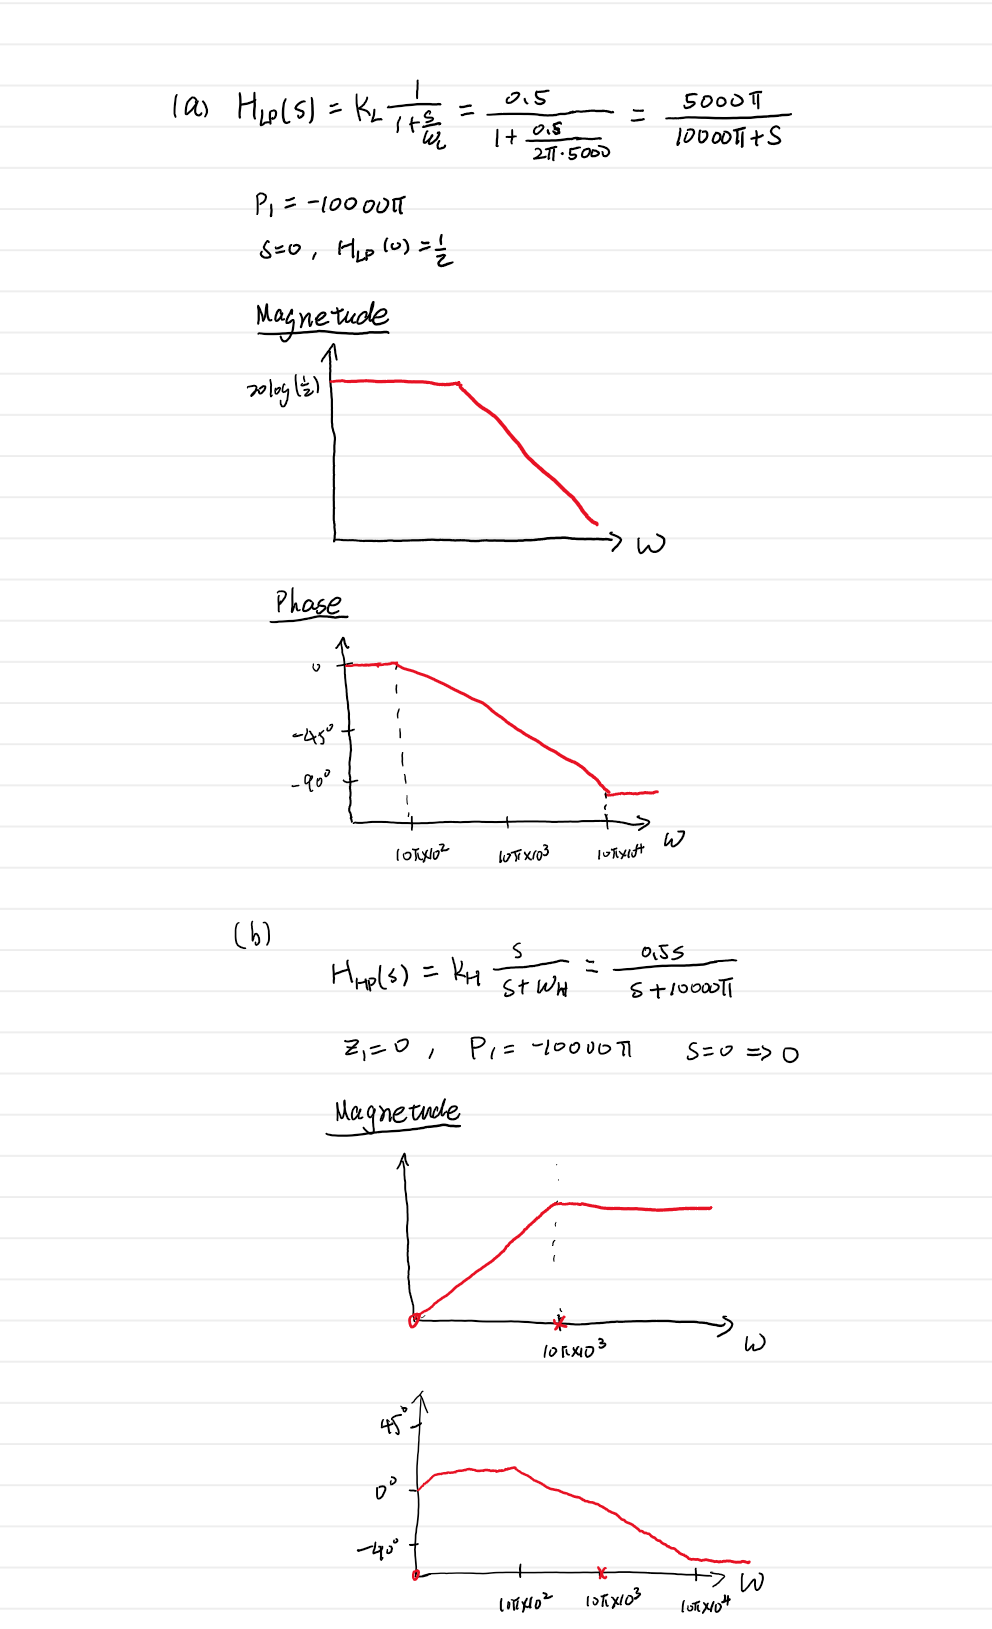 (a) H_LP(s) = K_L 1/(1+s/ω_L) = 0.5/(1+0.5/(2π·5000)) = 5000π/(10000π+s)
P₁ = -10000π
s=0, H_LP(0) = 1/2
Magnetude
20log(1/2)
ω
Phase
0
-45°
-90°
10π×10² 10π×10³ 10π×10⁴ ω
(b)
H_HP(s) = K_H s/(s+ω_H) = 0.5s/(s+10000π)
z₁=0, P₁= -10000π s=0 => 0
Magnetude
10π×10³ ω
45°
0°
-90°
10π×10² 10π×10³ 10π×10⁴ ω